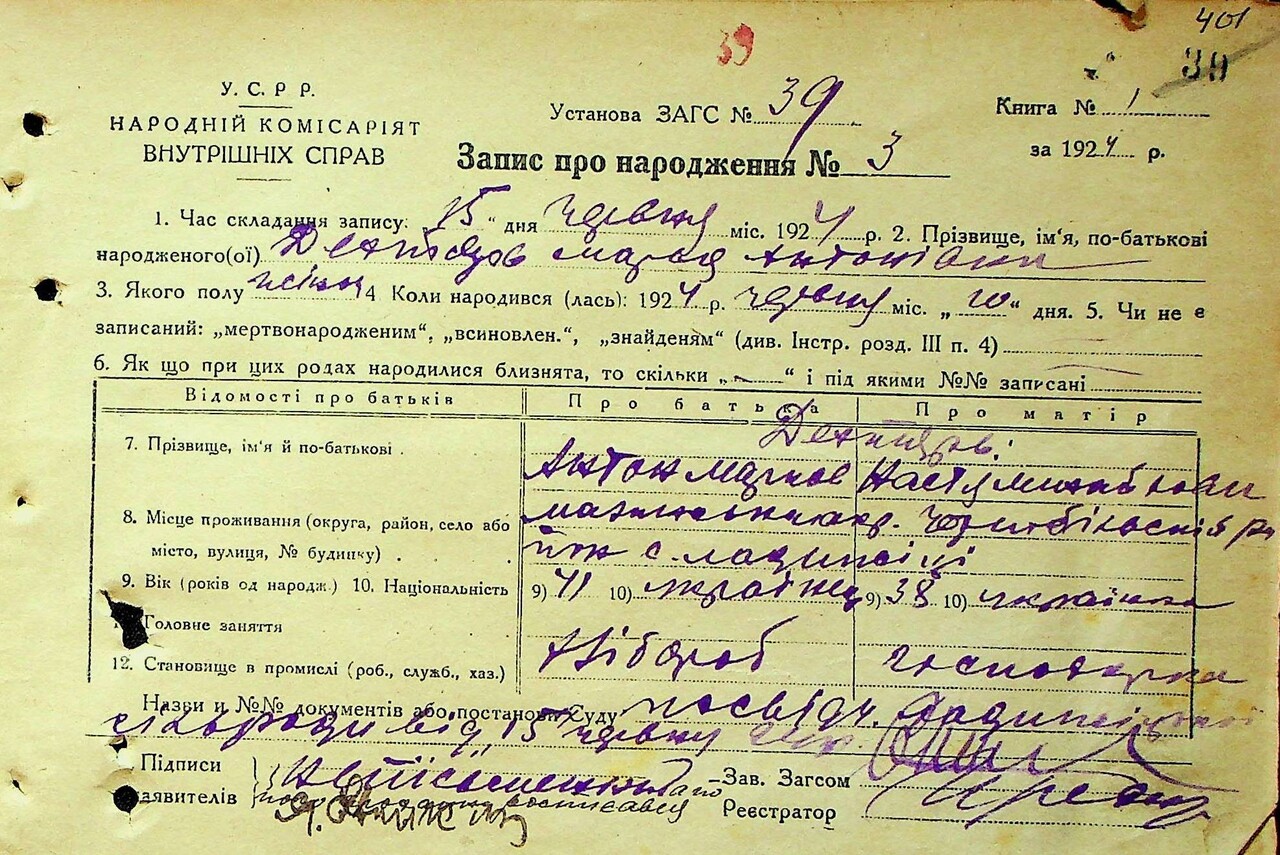 401
39
39
У. С. Р Р.
НАРОДНІЙ КОМІСАРІЯТ
ВНУТРІШНІХ СПРАВ
Установа ЗАГС № 39
Книга № 1
Запис про народження № 3
за 1924 р.
1. Час складання запису: 15 “ дня червня міс. 1924 р. 2. Прізвище, ім‘я, по-батькові
народженого(ої) Марья Антонівна
3. Якого полу жіноч 4 Коли народився (лась): 1924 р. червня міс. „ 10 “ дня. 5. Чи не є
записаний: „мертвонародженим“, „всиновлен.“, „знайденям“ (див. Інстр. розд. III п. 4)
6. Як що при цих родах народилися близнята, то скільки „ — “ і під якими №№ записані
Відомості про батьків Про батька Про матір
7. Прізвище, ім‘я й по-батькові .
Антон Марков Настя
8. Місце проживання (округа, район, село або
місто, вулиця, № будинку) .
с.
9. Вік (років од народж.) 10. Національність 9) 41 10) українец 9) 38 10) українка
Головне заняття
хлібороб господарка
12. Становище в промислі (роб., служб., хаз.)
Назви и №№ документів або постанови Суду посвідч.
сільради від 15 червня
Підписи
заявителів
Зав. Загсом
Реєстратор